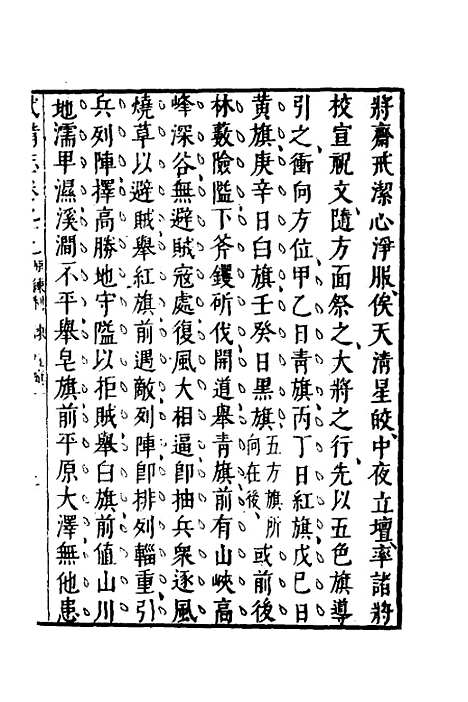 將齋戒潔心淨服俟天清星皎中夜立壇率諸將
校宣祝文隨方面祭之大將之行先以五色旗導
引之衝向方位甲乙日青旗丙丁日紅旗戊己日
黃旗庚辛日白旗壬癸日黑旗五方旗所向在後或前後
林藪險隘下斧钁斫伐開道舉青旗前有山峽高
峰深谷無避賊寇處復風大相逼即抽兵衆逐風
燒草以避賊舉紅旗前遇敵列陣即排列輜重引
兵列陣擇高勝地守隘以拒賊舉白旗前值山川
地濡甲濕溪澗不平舉皂旗前平原大澤無他患
武備志卷